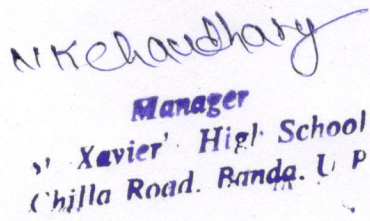 N K Chaudhary
Manager
Xavier' High School
Chilla Road. Banda. U P